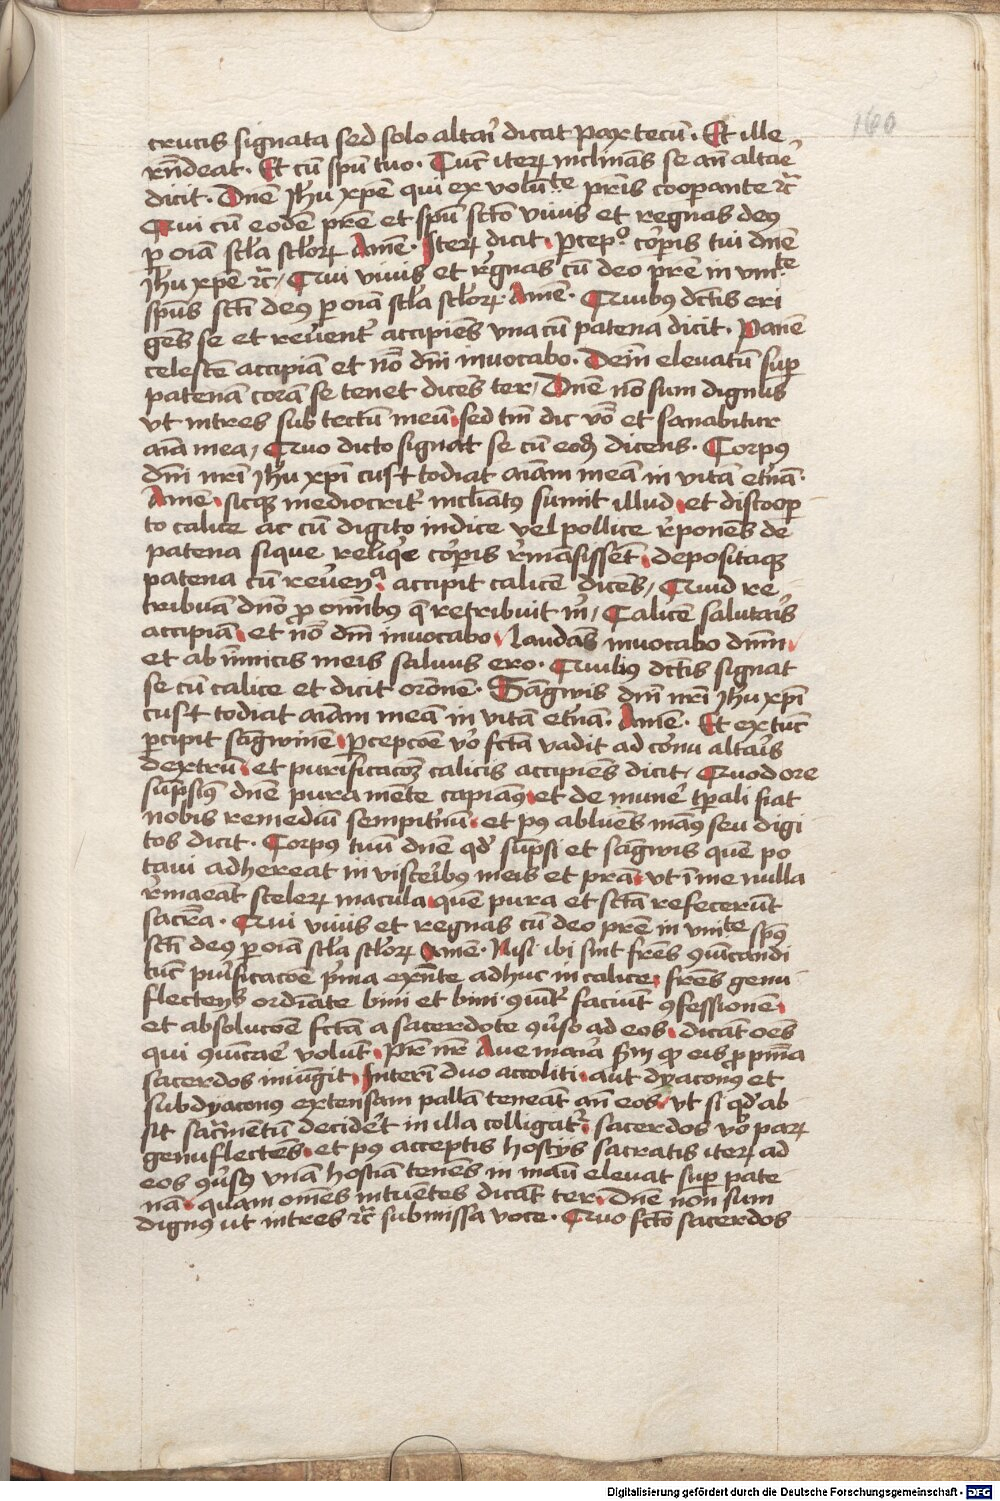 160
crucis signata sed solo altar̄ dicat Pax tecū. Et ille
rn̄deat. Et cū spū tuo. Tūc iterꝝ inclinās se an̄ altar̄
dicit. Dn̄e Jhū xp̄e qui ex volūte pr̄is cooperante ⁊c̄
Qui cū eodē pr̄e et spū sctō vivis et regnas deꝯ
ꝑ oīa scl̄a scl̄oꝝ Amē. Iterꝝ dicit. Ꝑcepº corꝑis tui dn̄e
Jhū xp̄e ⁊c̄ / Qui vivis et regnas cū deo pr̄e in vnite
spūs sctī deꝯ ꝑ oīa scl̄a scl̄oꝝ. Amē. Quibꝯ dc̄tis eri
gēs se et reuēnt̄ accipiēs vna cū patena dicit. Panē
celestē accipiā et nōe dn̄i invocabo. Dein̄ eleuatū suꝑ
patenā corā se tenet dicēs ter / Dn̄e nō sum dignus
vt intres sub tectū meū sed tm̄ dic vºo et sanabitur
aīa mea / Quo dicto signat se cū eod̄ dicens. Corpꝯ
dn̄i nr̄i Jhū xp̄i cus ✝ todiat aīam meā in vitā et̄nā.
Ame. sicqꝫ mediocrit̄ inclīatꝯ sumit illud et discooꝑ
to calice ac cū digito indice vel pollice r̄ponēs de
patena sique reliqꝫe corꝑis r̄māsissēt depositaqꝫ
patena cū reuēnª accipit calicē dicēs / Quid re
tribuā dn̄o ꝓ omībꝯ q̄ retribuit m̄ / Calicē salutar̄s
accipiā et nōe dn̄i invocabo Laudās invocabo dn̄m
et ab īmicis meis saluus ero. Quibꝯ dc̄tis signat
se cū calice et dicit orōnē. Sāgwis dn̄i nr̄i Jhū xp̄i
cus ✝ todiat aīam meā in vitā et̄nā. Amē. Et ex tūc
ꝑcipit sāgwinē Ꝑcepcōe vº fctā vadit ad cornu altar̄s
dextrū et purificacōꝫ calicis accipiēs dicit / Quod ore
sūpsimꝯ dn̄e pura mēte capiāꝯ et de muner̄ tꝑali fiat
nobis remediū sempit̄nū et pꝯ abluēs māꝯ seu digi
tos dicit. Corpꝯ tuū dn̄e qd̄ sūpsi et sāgwis quē po
taui adhereat in viscerībꝯ meis et prā vt ī me nulla
r̄maeāt sceleꝝ macula quē pura et sctā refecerūt
sacrā. Qui viuis et regnas cū deo pr̄e in vnite spūꝯ
sctī deꝯ ꝑ oīa scl̄a scl̄oꝝ Amē. Nisi ibi sint frēs ꝯuīcandi
tūc purificacōe pīma exn̄te adhuc in calice frēs genu
flectens ordīate bini et bini ꝯuīt̄ faciūt ꝯfessionē
et absolucōe fctā a sacerdote ꝯūso ad eos dicāt oēs
qui ꝯuīcar̄e volūt Pr̄ nr̄ Ave maria sm̄ qꝫ eis ꝓ pnīa
sacerdos iniūgit Interī duo accoliti aut dyaconꝯ et
subdyaconus extensam pallā teneāt an̄ eos vt si qd̄ ab
sit sacr̄mentū deciderēt in illa colligat̄ sacerdos vº paꝝ
genuflectēs et pꝯ acceptis hostijs sacratis iterꝝ ad
eos ꝯūsꝯ vnā hostiā tenēs in manū eleuat suꝑ pate
nā quam omēs intuētes dicāt ter dn̄e non sum
dignꝯ ut intres ⁊c̄ submissa voce. Quo fctō sacerdos
Digitalisierung gefördert durch die Deutsche Forschungsgemeinschaft - DFG